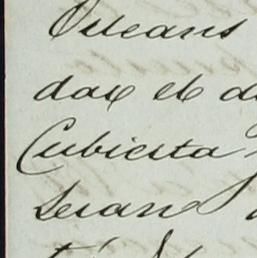 Orleans
dar el d
Cubierta
Seran